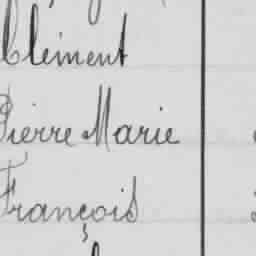 Clément
Pierre Marie
François